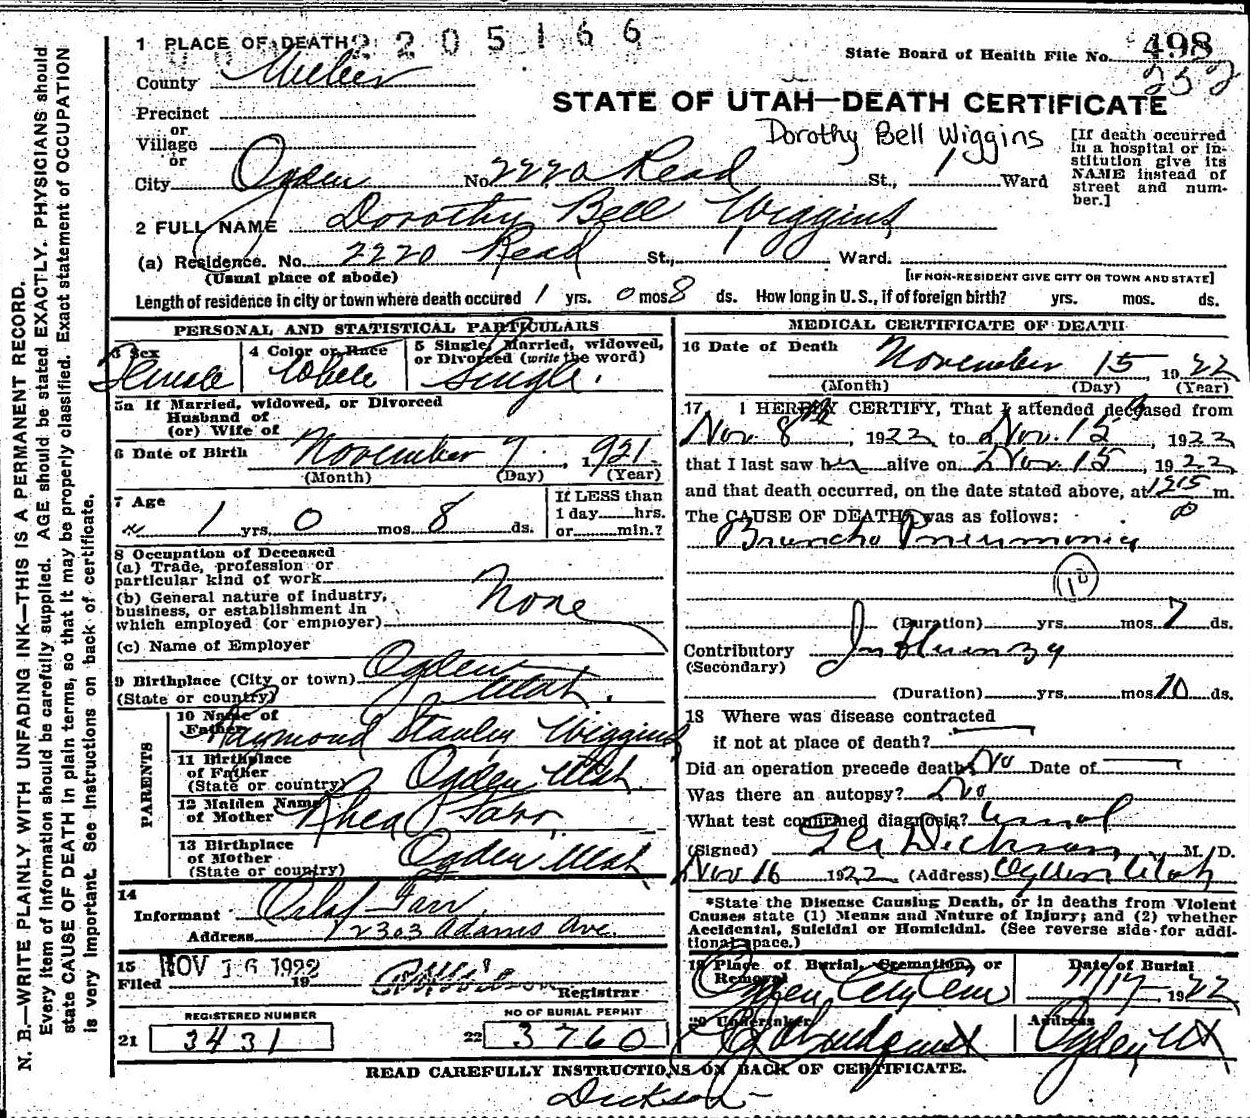 2205166
1 PLACE OF DEATH
State Board of Health File No. 498
252
County Weber
STATE OF UTAH—DEATH CERTIFICATE
Precinct
or
Village
or
Dorothy Bell Wiggins
[If death occurred in a hospital or institution give its NAME instead of street and number.]
City Ogden No. 2220 Read St., 1 Ward
2 FULL NAME Dorothy Bell Wiggins
(a) Residence. No. 2220 Read St., 1 Ward.
(Usual place of abode) [IF NON-RESIDENT GIVE CITY OR TOWN AND STATE]
Length of residence in city or town where death occured 1 yrs. 0 mos 8 ds. How long in U.S., if of foreign birth? yrs. mos. ds.
PERSONAL AND STATISTICAL PARTICULARS
3 Sex Female
4 Color or Race White
5 Single, Married, widowed, or Divorced (write the word) Single.
5a If Married, widowed, or Divorced
Husband of
(or) Wife of
6 Date of Birth November 7, 1921
(Month) (Day) (Year)
7 Age
1 yrs. 0 mos. 8 ds.
If LESS than
1 day hrs.
or min.?
8 Occupation of Deceased
(a) Trade, profession or
particular kind of work
(b) General nature of industry,
business, or establishment in
which employed (or employer) None
(c) Name of Employer
9 Birthplace (City or town) Ogden
(State or country) Utah.
PARENTS
10 Name of
Father Raymond Stanley Wiggins
11 Birthplace
of Father Ogden Utah.
(State or country)
12 Maiden Name
of Mother Rhea Tarr
13 Birthplace
of Mother Ogden Utah.
(State or country)
14
Informant Tarr
Address 2303 Adams Ave.
15
Filed NOV 16 1922 19 Registrar
REGISTERED NUMBER
21 3431
NO OF BURIAL PERMIT
22 3760
MEDICAL CERTIFICATE OF DEATH
16 Date of Death November 15 1922
(Month) (Day) (Year)
17 I HEREBY CERTIFY, That I attended deceased from
Nov. 8th, 1922 to Nov. 15, 1922
that I last saw her alive on Nov. 15, 1922
and that death occurred, on the date stated above, at 1215 m.
The CAUSE OF DEATH* was as follows:
Broncho Pneumonia
10
(Duration) yrs. mos. 7 ds.
Contributory Influenza
(Secondary)
(Duration) yrs. mos. 10 ds.
18 Where was disease contracted
if not at place of death?
Did an operation precede death? No Date of
Was there an autopsy? No
What test confirmed diagnosis? Usual
(Signed) Dickson, M. D.
Nov 16 1922 (Address) Ogden Utah
*State the Disease Causing Death, or in deaths from Violent
Causes state (1) Means and Nature of Injury; and (2) whether
Accidental, Suicidal or Homicidal. (See reverse side for addi-
tional space.)
19 Place of Burial, Cremation, or
Removal Ogden City Cem
Date of Burial
11/17 1922
20 Undertaker Lindquist
Address Ogden Ut
READ CAREFULLY INSTRUCTIONS ON BACK OF CERTIFICATE.
Dickson
N. B.—WRITE PLAINLY WITH UNFADING INK—THIS IS A PERMANENT RECORD.
Every item of information should be carefully supplied. AGE should be stated EXACTLY. PHYSICIANS should
state CAUSE OF DEATH in plain terms, so that it may be properly classified. Exact statement of OCCUPATION
is very important. See instructions on back of certificate.